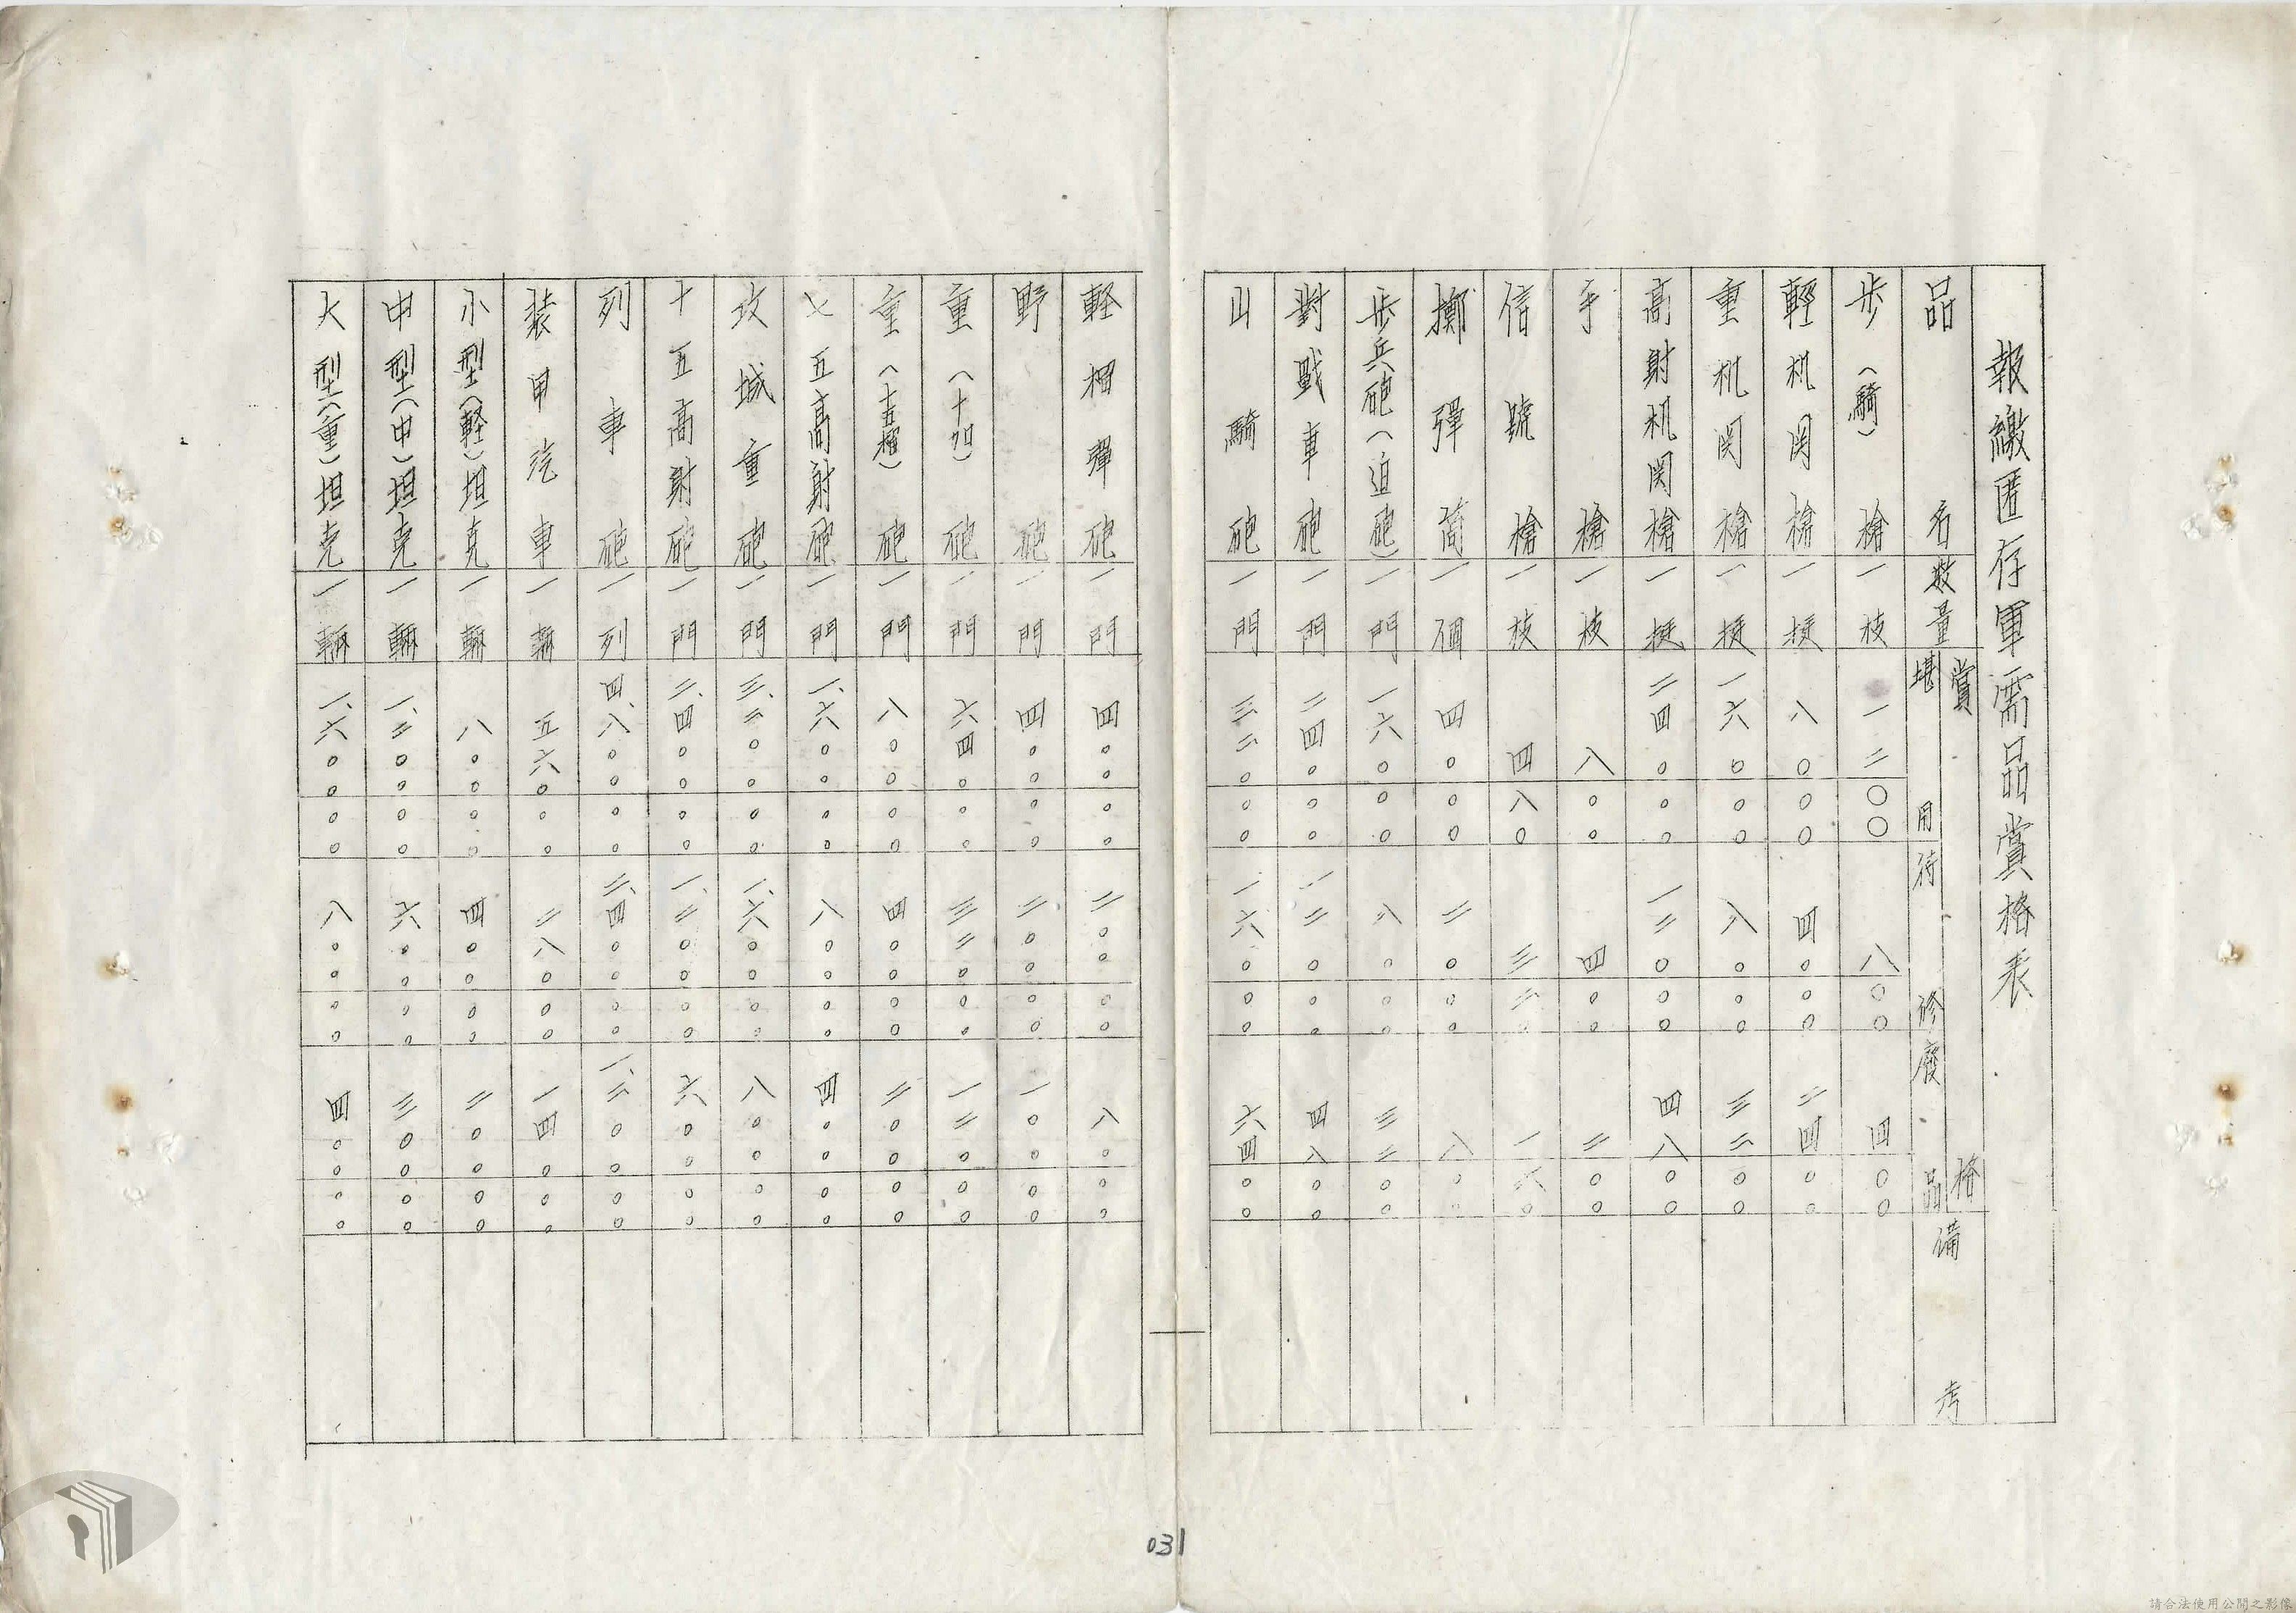 報繳匿存軍需品賞格表
品名 數量 賞格 堪用 待修 廢品 備考
步(騎)槍 一枝 一二〇〇 八〇〇 四〇〇
輕机関槍 一挺 八〇〇〇 四〇〇〇 二四〇〇
重机関槍 一挺 一六〇〇〇 八〇〇〇 三二〇〇
高射机関槍 一挺 二四〇〇〇 一二〇〇〇 四八〇〇
手槍 一枝 八〇〇 四〇〇 二〇〇
信號槍 一枝 四八〇 三二〇 一六〇
擲彈筒 一個 四〇〇〇 二〇〇〇 八〇〇
步兵砲(迫砲) 一門 一六〇〇〇 八〇〇〇 三二〇〇
對戰車砲 一門 二四〇〇〇 一二〇〇〇 四八〇〇
山騎砲 一門 三二〇〇〇 一六〇〇〇 六四〇〇
軽榴彈砲 一門 四〇〇〇〇 二〇〇〇〇 八〇〇〇
野砲 一門 四〇〇〇〇 二〇〇〇〇 一〇〇〇〇
重(十加)砲 一門 六四〇〇〇 三二〇〇〇 一二〇〇〇
重(十五榴)砲 一門 八〇〇〇〇 四〇〇〇〇 二〇〇〇〇
七五高射砲 一門 一、六〇〇〇〇 八〇〇〇〇 四〇〇〇〇
攻城重砲 一門 三、二〇〇〇〇 一、六〇〇〇〇 八〇〇〇〇
十五高射砲 一門 二、四〇〇〇〇 一、二〇〇〇〇 六〇〇〇〇
列車砲 一列 四、八〇〇〇〇 二、四〇〇〇〇 一、二〇〇〇〇
裝甲汽車 一輛 五六〇〇〇 二八〇〇〇 一四〇〇〇
小型(軽)坦克 一輛 八〇〇〇〇 四〇〇〇〇 二〇〇〇〇
中型(中)坦克 一輛 一、二〇〇〇〇 六〇〇〇〇 三〇〇〇〇
大型(重)坦克 一輛 一、六〇〇〇〇 八〇〇〇〇 四〇〇〇〇
031
請合法使用公開之影像